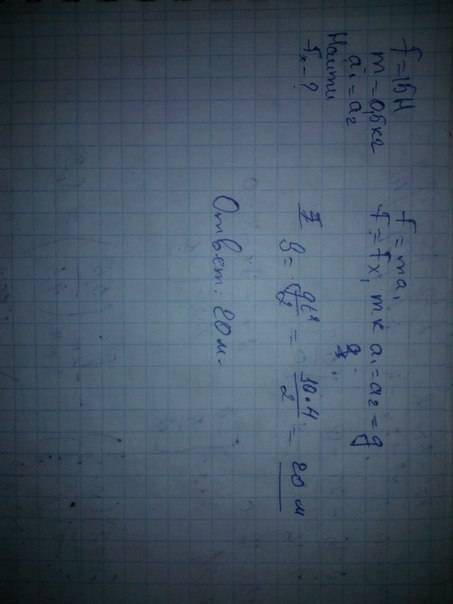 f = 15 Н
m = 0,5 кг
a₁ = a₂
Найти
fₓ – ?
f = ma₁
f = fx, т к a₁ = a₂ = g.
7
S = gt²/2 = 10·4/2 = 20 м
Ответ: 20 м.